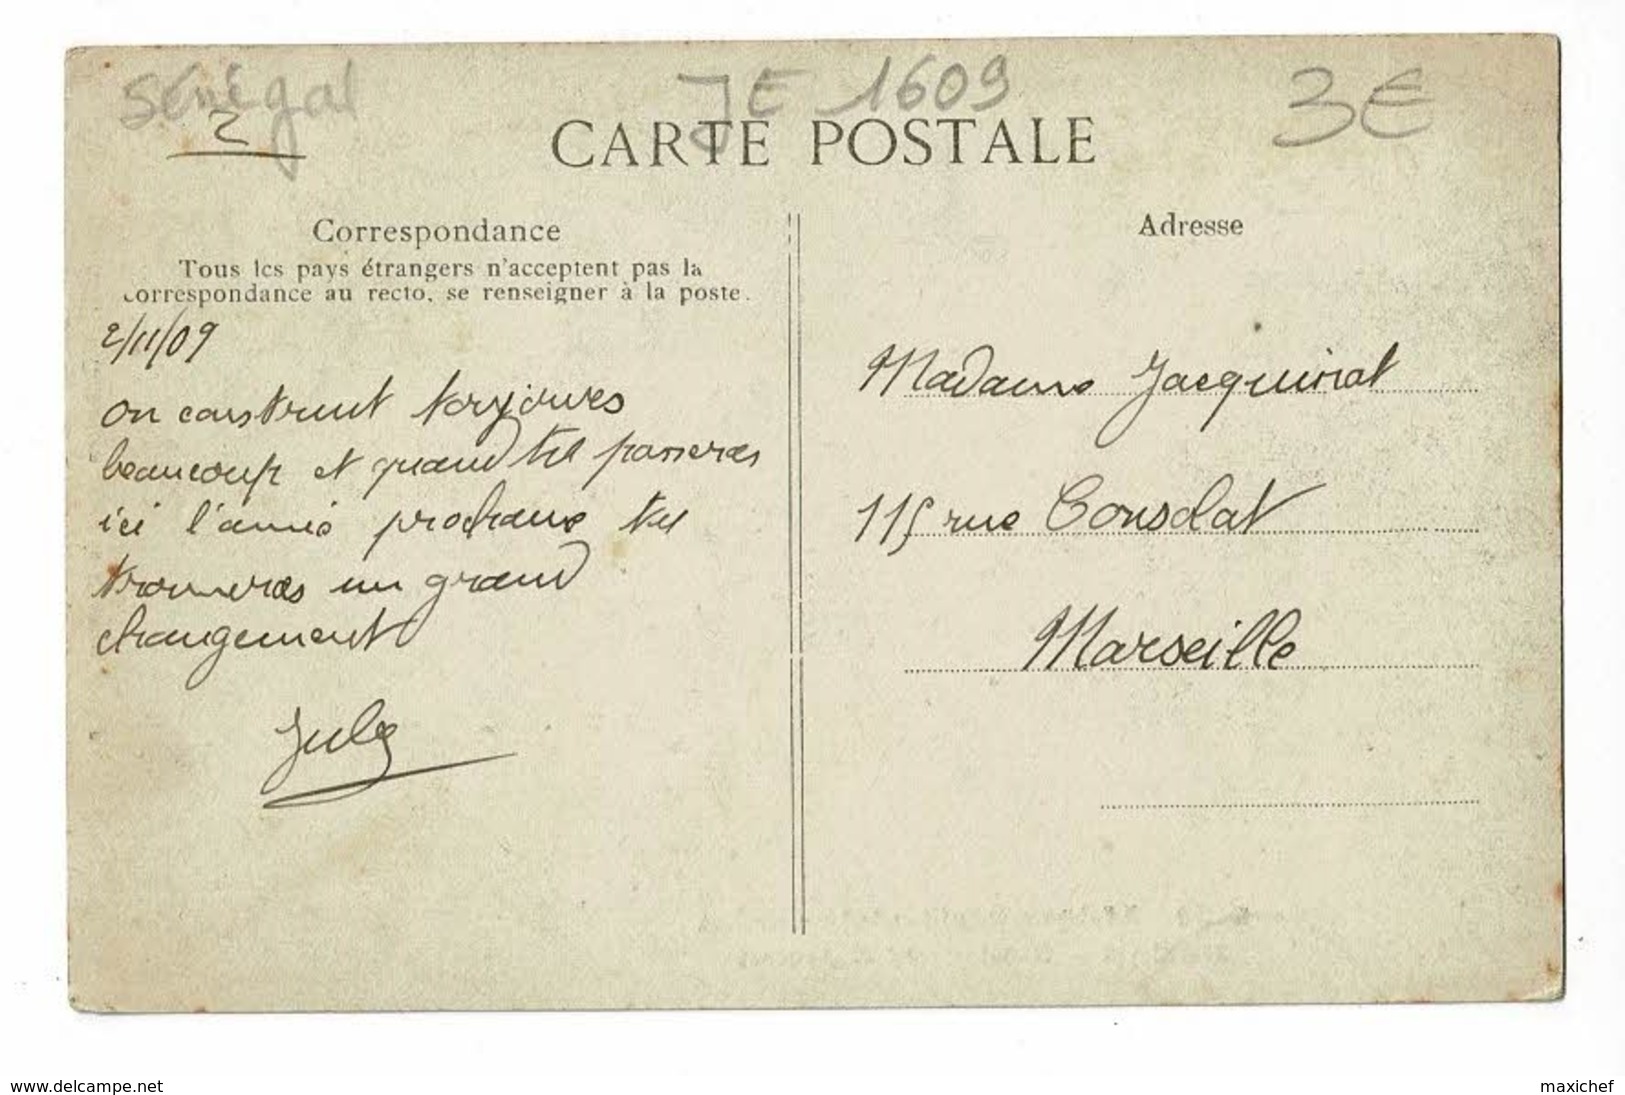 Sénégal
2
JE 1609
3€
CARTE POSTALE
Correspondance
Tous les pays étrangers n'acceptent pas la
correspondance au recto, se renseigner à la poste.
2/11/09
on construit toujours
beaucoup et quand tu passeras
ici l'année prochaine tu
trouveras un grand
changement
Jules
Adresse
Madame Jacquinat
115 rue Consolat
Marseille
www.delcampe.net
maxichef